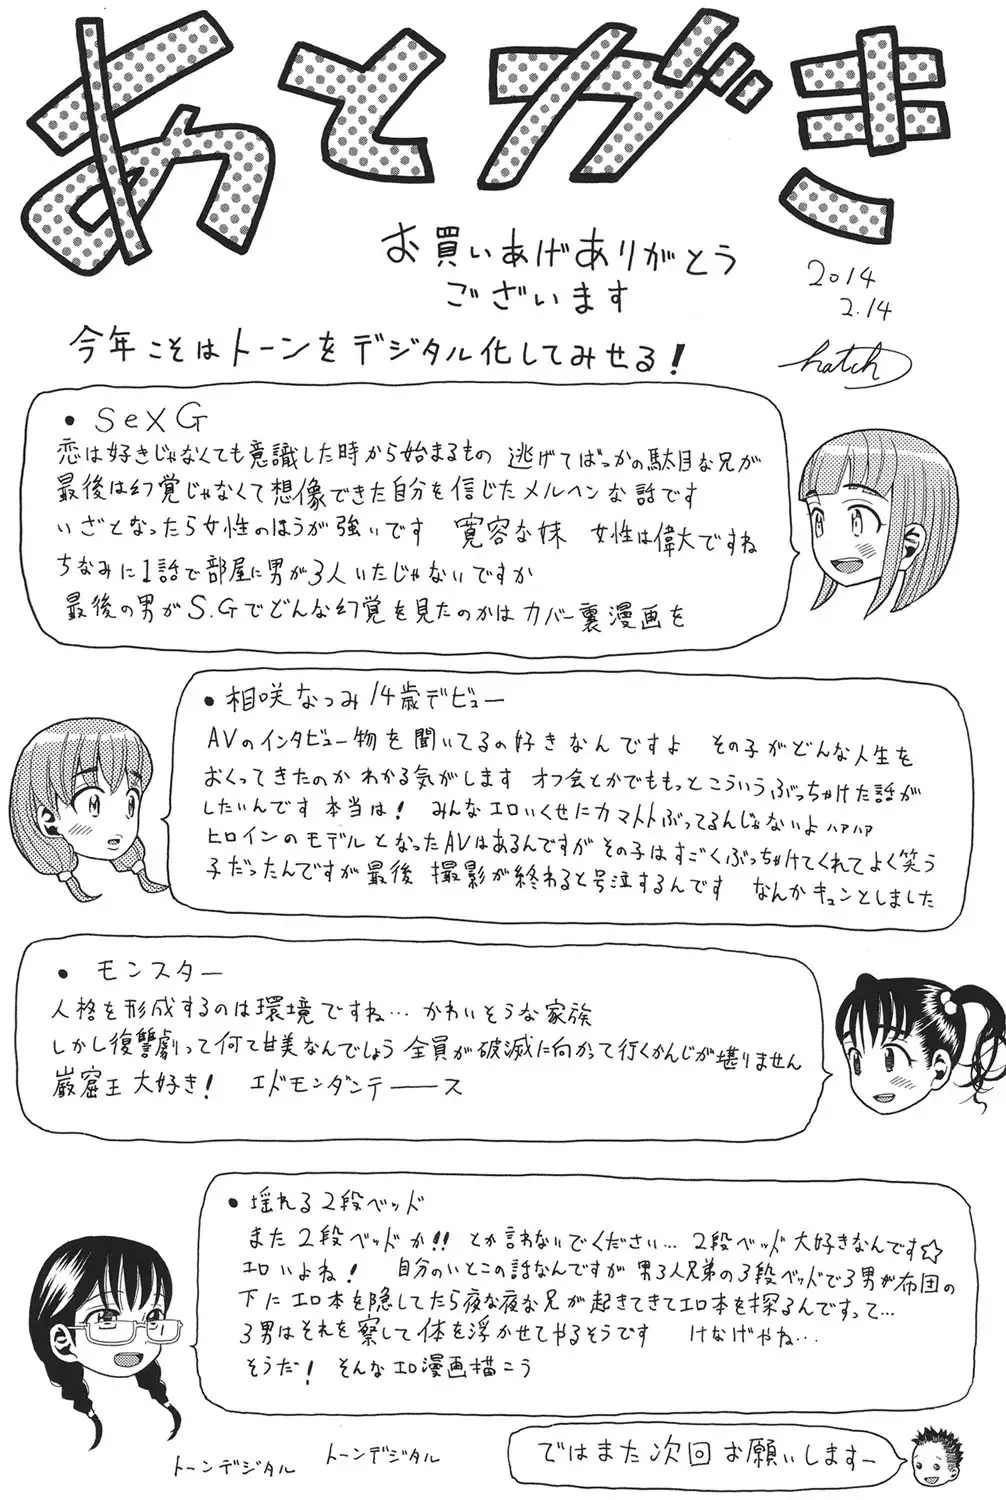 あとがき
お買いあげありがとう
ございます
2014
2.14
今年こそはトーンをデジタル化してみせる!
hatch
● SeX G
恋は好きじゃなくても意識した時から始まるもの 逃げてばっかの駄目な兄が
最後は幻覚じゃなくて想像できた自分を信じたメルヘンな話です
いざとなったら女性のほうが強いです 寛容な妹 女性は偉大ですね
ちなみに1話で部屋に男が3人いたじゃないですか
最後の男がS.Gでどんな幻覚を見たのかはカバー裏漫画を
● 相咲なつみ14歳デビュー
AVのインタビュー物を聞いてるの好きなんですよ その子がどんな人生を
おくってきたのかわかる気がします オフ会とかでももっとこういうぶっちゃけた話が
したいんです 本当は! みんなエロいくせにカマトトぶってるんじゃないよ ハァハァ
ヒロインのモデルとなったAVはあるんですがその子はすごくぶっちゃけてくれてよく笑う
子だったんですが最後 撮影が終わると号泣するんです なんかキュンとしました
● モンスター
人格を形成するのは環境ですね… かわいそうな家族
しかし復讐劇って何て甘美なんでしょう 全員が破滅に向かって行くかんじが堪りません
巌窟王大好き! エドモンダンテーース
● 揺れる2段ベッド
また2段ベッドか!! とか言わないでください… 2段ベッド大好きなんです☆
エロいよね! 自分のいとこの話なんですが男3人兄弟の3段ベッドで3男が布団の
下にエロ本を隠してたら夜な夜な兄が起きてきてエロ本を探るんですって…
3男はそれを察して体を浮かせてやるそうです けなげやね…
そうだ! そんなエロ漫画描こう
トーンデジタル
トーンデジタル
ではまた次回お願いします-